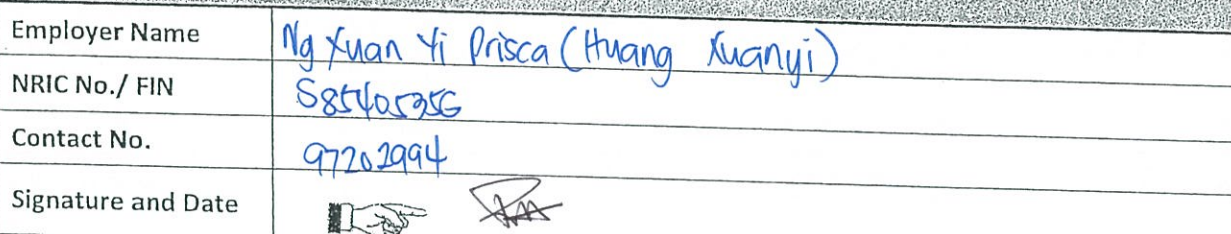 Employer Name Ng Xuan Yi Prisca (Huang Xuanyi)
NRIC No./ FIN S8540535G
Contact No. 97202994
Signature and Date